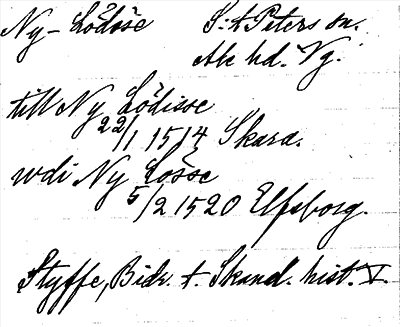 Ny-Lödöse S:t Peters sn.
Ale hd. Vg.
till Ny Lödisse
22/1 1514 Skara.
wdi Ny Losse
5/2 1520 Elfsborg.
Styffe, Bidr. t. Skand. hist. V.